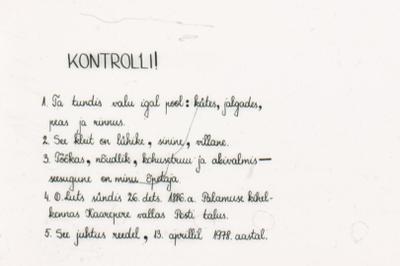 KONTROLLI!
1. Ta tundis valu igal pool : kätes, jalgades,
peas ja rinnus.
2. See kleit on lühike, sinine, villane.
3. Töökas, nõudlik, kohusetruu ja abivalmis —
seesugune on minu õpetaja
4. O. Luts sündis 26. dets. 1886. a. Palamuse kihel-
konnas Kaarepere vallas Posti talus.
5. See juhtus reedel, 13. aprillil 1978. aastal.